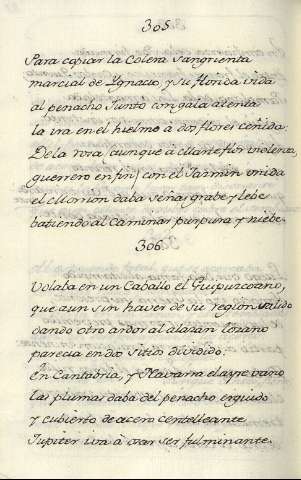 305
Para copiar la Colera sangrienta
marcial de Ygnacio, y su florida vida
al penacho Junto con gala atenta
la ira en el hielmo a dos flores ceñida:
De la rosa, aunque à Marte flor violenta,
guerrero en fin, con el Jazmin unida
el Morrion daba señas grabe y lebe
batiendo al Caminar purpura y niebe.
306.
Volaba en un Caballo el Guipuzcoano,
que aun sin haver de su region salido
dando otro ardor al alazan lozano
parecia en dos sitios dividido.
En Cantabria, y Navarra el ayre vano
las plumas daba del penacho erguido
y cubierto de acero centelleante
Jupiter iva à ser fulminante.